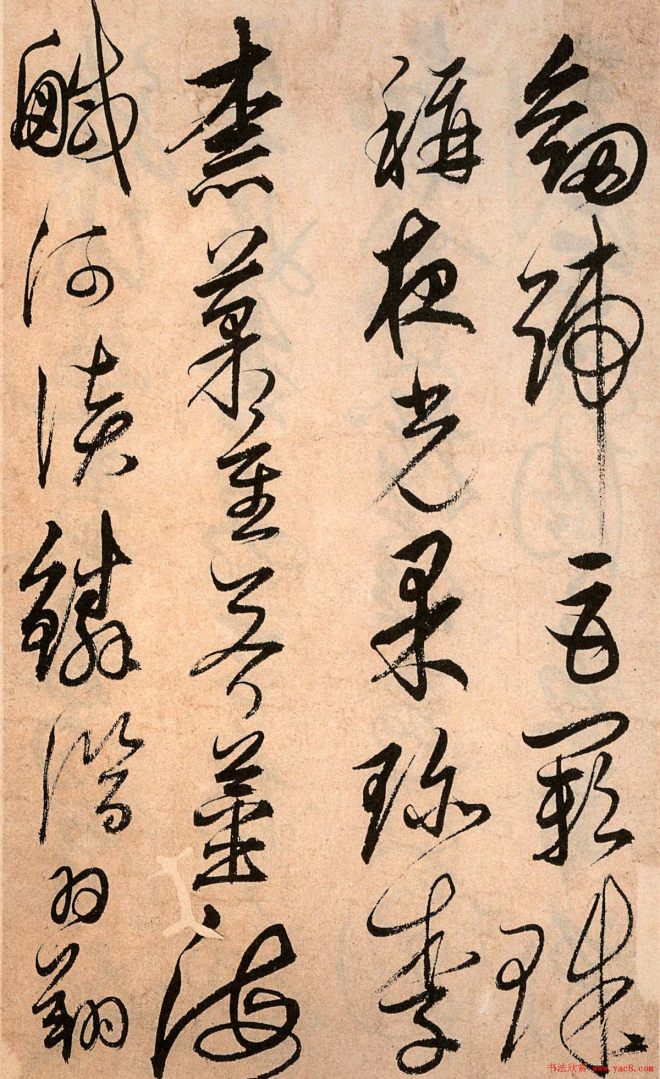 劍號巨闕珠
稱夜光果珍李
柰菜重芥薑海
鹹河淡鱗潛羽翔
书法欣赏 www.yac8.com